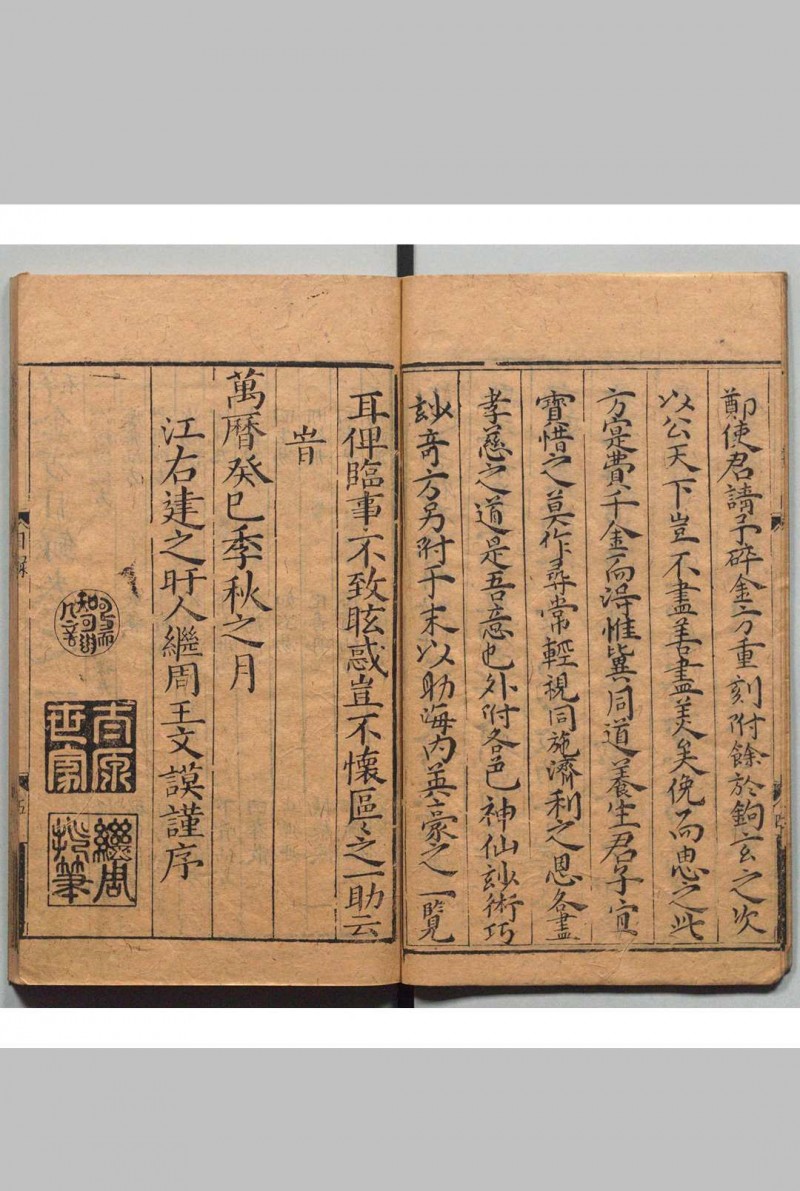 鄭使君請予碎金方重刻附餘於鉤玄之次
以公天下豈不盡善盡美矣俛而思之此
方寔費千金而得惟巽同道養生君子宜
寶惜之莫作尋常輕視同施濟利之恩各盡
孝慈之道是吾意也外附各色神仙玅術巧
玅奇方另附于末以助海内英豪之一覽
耳俾臨事不致眩惑豈不懷區〻之一助云
旹
萬曆癸巳季秋之月
江右建之盱人繼周王文謨謹序
繼周